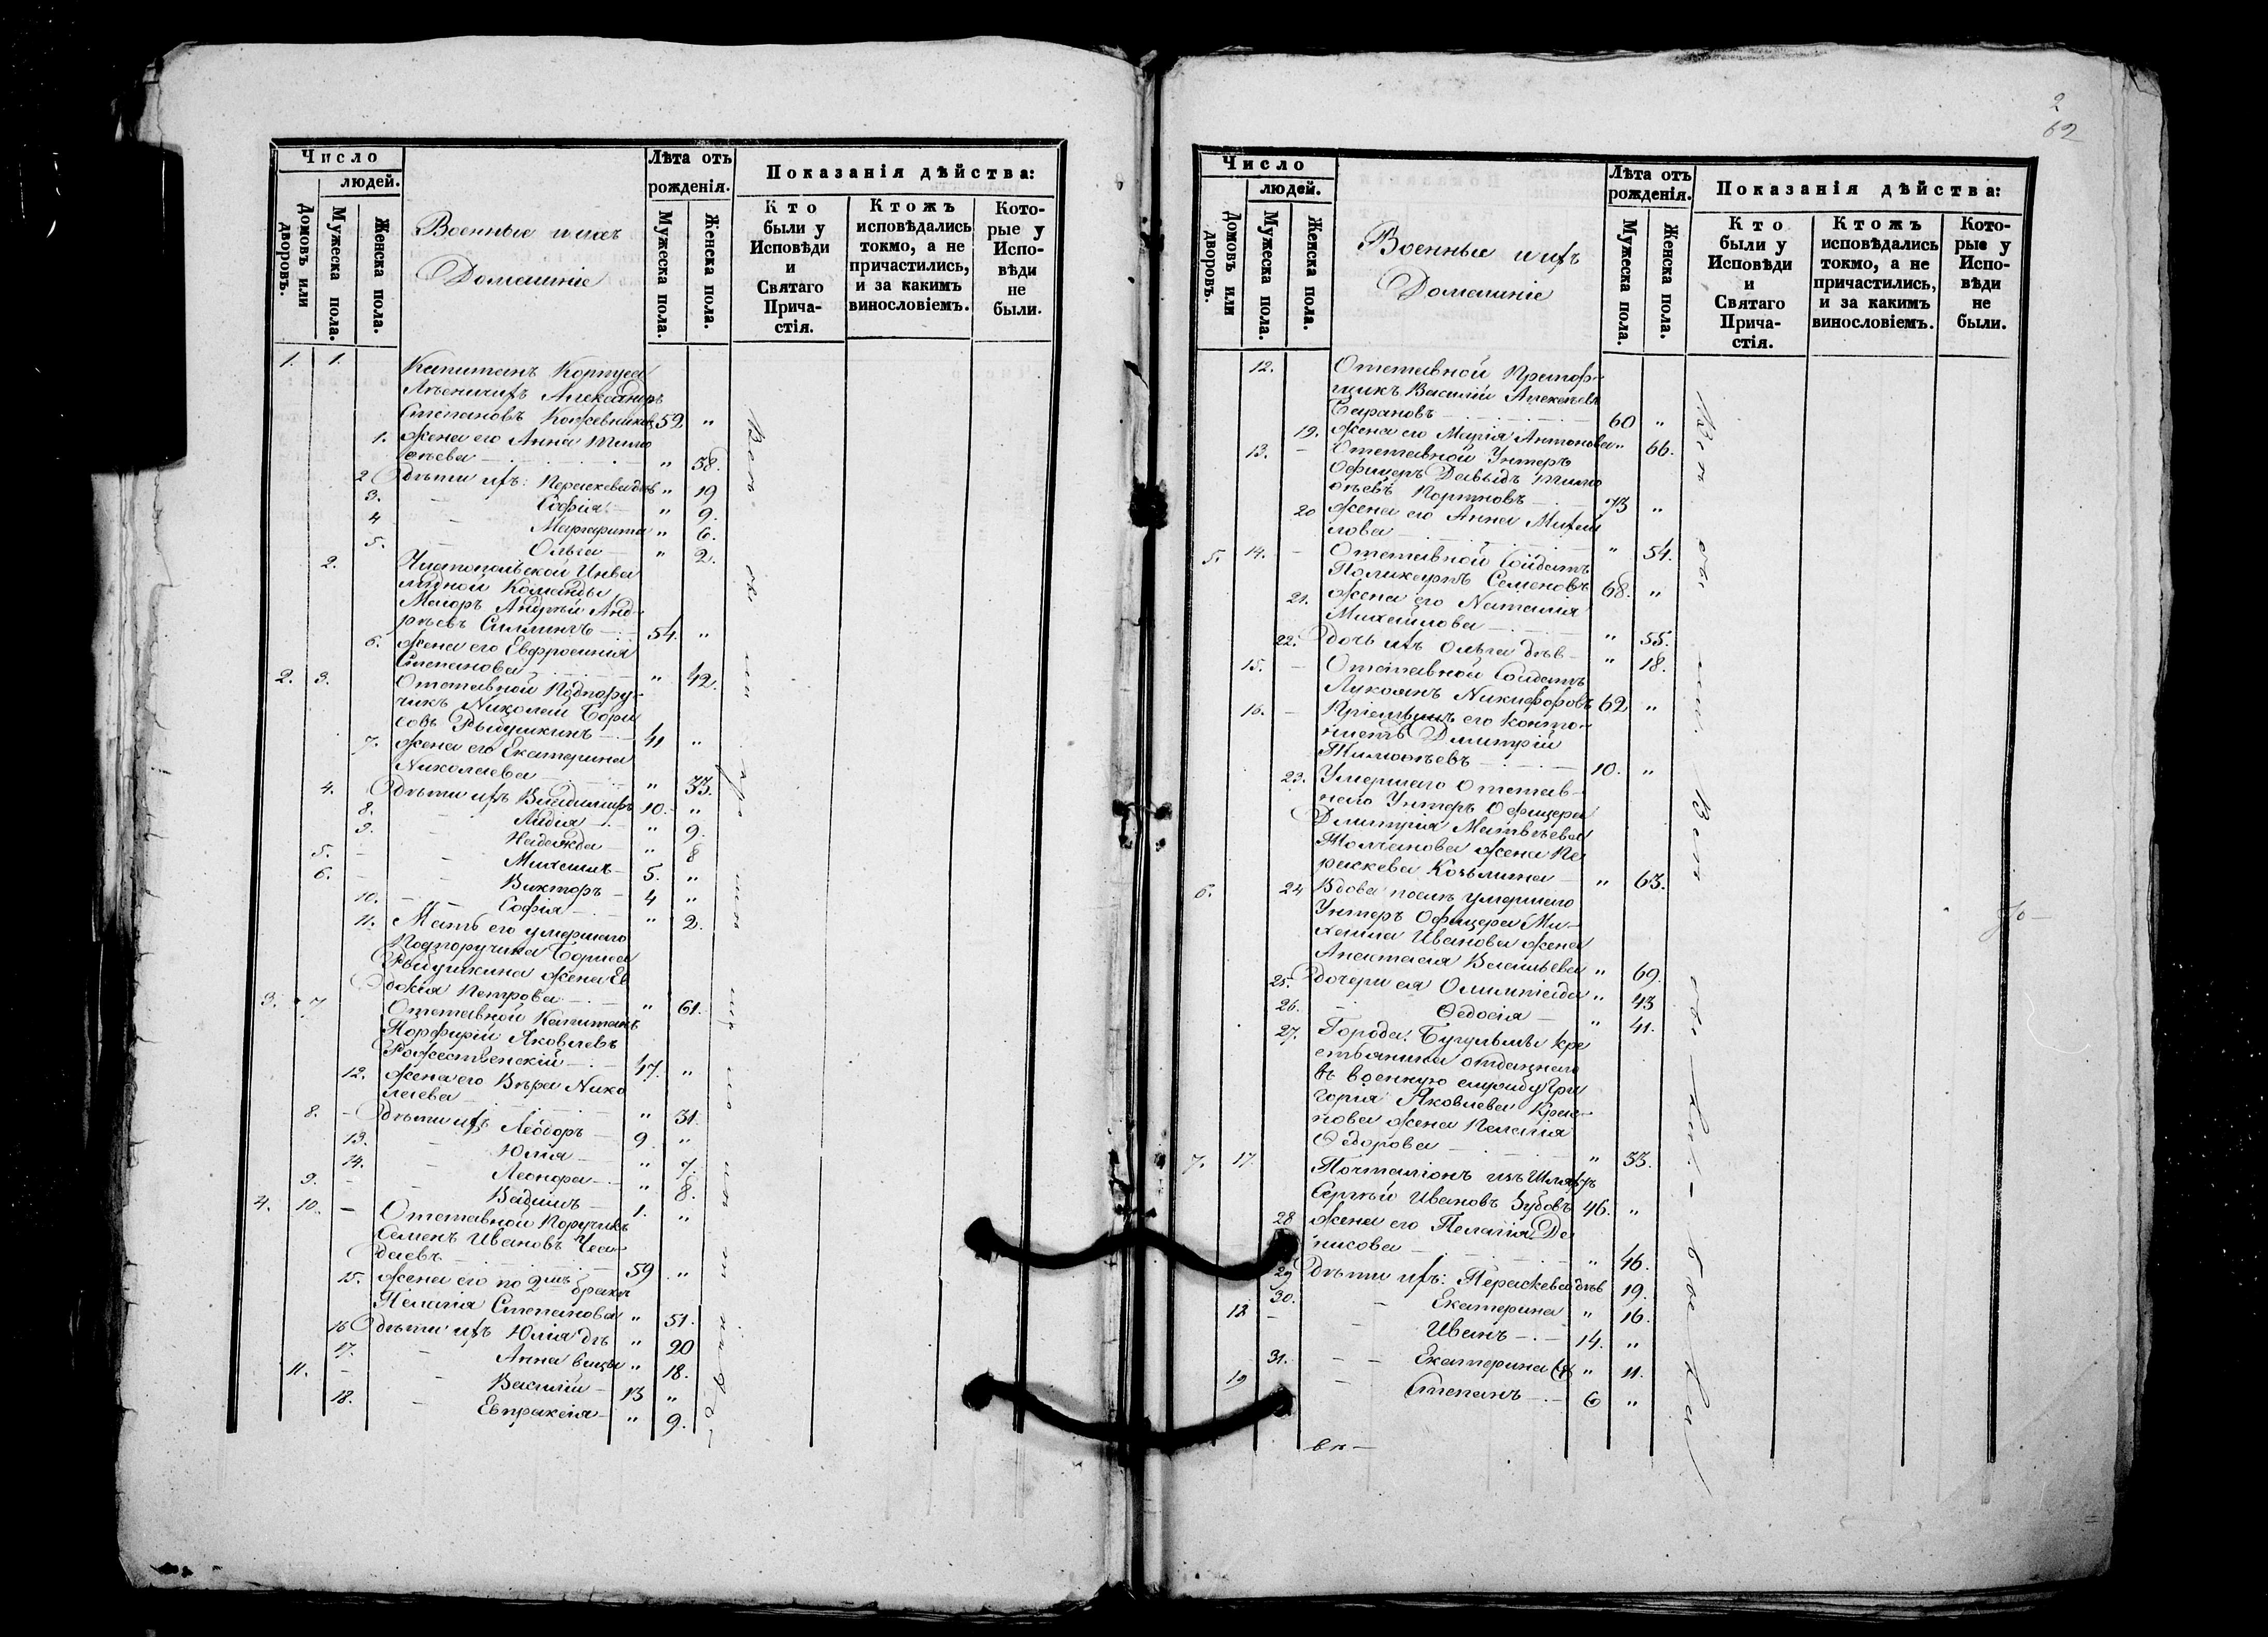 Число
людей.
Домовъ или дворовъ.
Мужеска пола.
Женска пола.
Военные и ихъ
Домашніе
Лѣта отъ
рожденія.
Мужеска пола.
Женска пола.
Показанія дѣйства:
Кто были у Исповѣди и Святаго Прича-стія.
Ктожъ исповѣдались токмо, а не причастились, и за какимъ винословіемъ.
Кото-рые у Испо-вѣди не были.
1. 1. Капитанъ Корпуса
Лѣсничихъ Александръ
Степановъ Кожевниковъ 52 "
1. жена его Анна Тимо
ѳеева " 38.
2 Дѣти ихъ: Параскева дѣв " 19
3. Софія " 9.
4 Маргарита " 6.
5. Ольга " 2.
2. Чистопольской Инва
лидной Команды
Маіоръ Андрей Анд-
реевъ 54. "
6. жена его Евфросинія
Степанова " 42.
2. 3. Отставной Подпору-
чикъ Николай Бори
совъ Рыбушкинъ 41 "
7. жена его Екатерина
Николаева " 33.
4. Дѣти ихъ Владимиръ 10. "
8. Лидія " 9.
9. Надежда " 8
5. Михаилъ 5. "
6. Викторъ 4 "
10. Софія " 2.
11. Мать его умершаго
Подпоручика Бориса
Рыбушкина жена Ев
докія Петрова " 61.
3. 7 Отставной Капитанъ
Порфирій Яковлевъ
Рожественскій 47. "
12. жена его Вѣра Нико
лаева " 31.
8. Дѣти ихъ Леодоръ 9 "
13. Юлія " 7.
14. Леонора " 8.
9. Вадимъ 1. "
4. 10. Отставной Поручикъ
Семенъ Ивановъ Чеа-
даевъ 59 "
15. жена его по 2мъ бракѣ
Пелагія Степанова " 51.
16 Дѣти ихъ Юлія дѣ " 20
17. Анна вицы " 18.
11. Василій 13 "
18. Евпраксія " 9.
2
62
Число
людей.
Домовъ или дворовъ.
Мужеска пола.
Женска пола.
Военные и ихъ
Домашніе
Лѣта отъ
рожденія.
Мужеска пола.
Женска пола.
Показанія дѣйства:
Кто были у Исповѣди и Святаго Прича-стія.
Ктожъ исповѣдались токмо, а не причастились, и за какимъ винословіемъ.
Кото-рые у Испо-вѣди не были.
12. Отставной Прапор-
щикъ Василій Алексѣевъ
Барановъ 60 "
19. жена его Марія Антонова " 66.
13. Отставной Унтеръ
Офицеръ Давыдъ Тимо
ѳеевъ Портновъ 73 "
20 жена его Анна Михаи
лова " 54.
5. 14. Отставной Солдатъ
Поликарпъ Семеновъ 68. "
21. жена его Наталія
Михайлова " 55.
22. Дочь ихъ Ольга дѣв " 18.
15. Отставной Солдатъ
Лукоянъ Никифоровъ 62 "
16. Пріемышъ его канто-
нистъ Димитрій
Тимоѳеевъ 10. "
23. Умершаго Отстав-
наго Унтеръ Офицера
Димитрія Матвѣева
Толчанова жена Па
раскева Козьмина " 63.
6. 24 Вдова послѣ умершаго
Унтеръ Офицера Ми-
хаила Иванова жена
Анастасія Васильева " 69.
25. Дочери ея Олимпіада " 43
26. Ѳедосія " 41.
27. Города Бугульмы кре
стьянина отданнаго
въ военную службу Гри
горія Яковлева Крас-
нова жена Пелагія
Ѳедорова " 33.
7. 17. Почталіонъ изъ
Сергѣй Ивановъ Зубовъ 46. "
28 жена его Пелагія Де
нисова " 46.
29 Дѣти ихъ: Параскева дѣв 19.
30. Екатерина " 16.
12 Иванъ 14. "
31. Екатерина " 11.
19 Степанъ 6 "